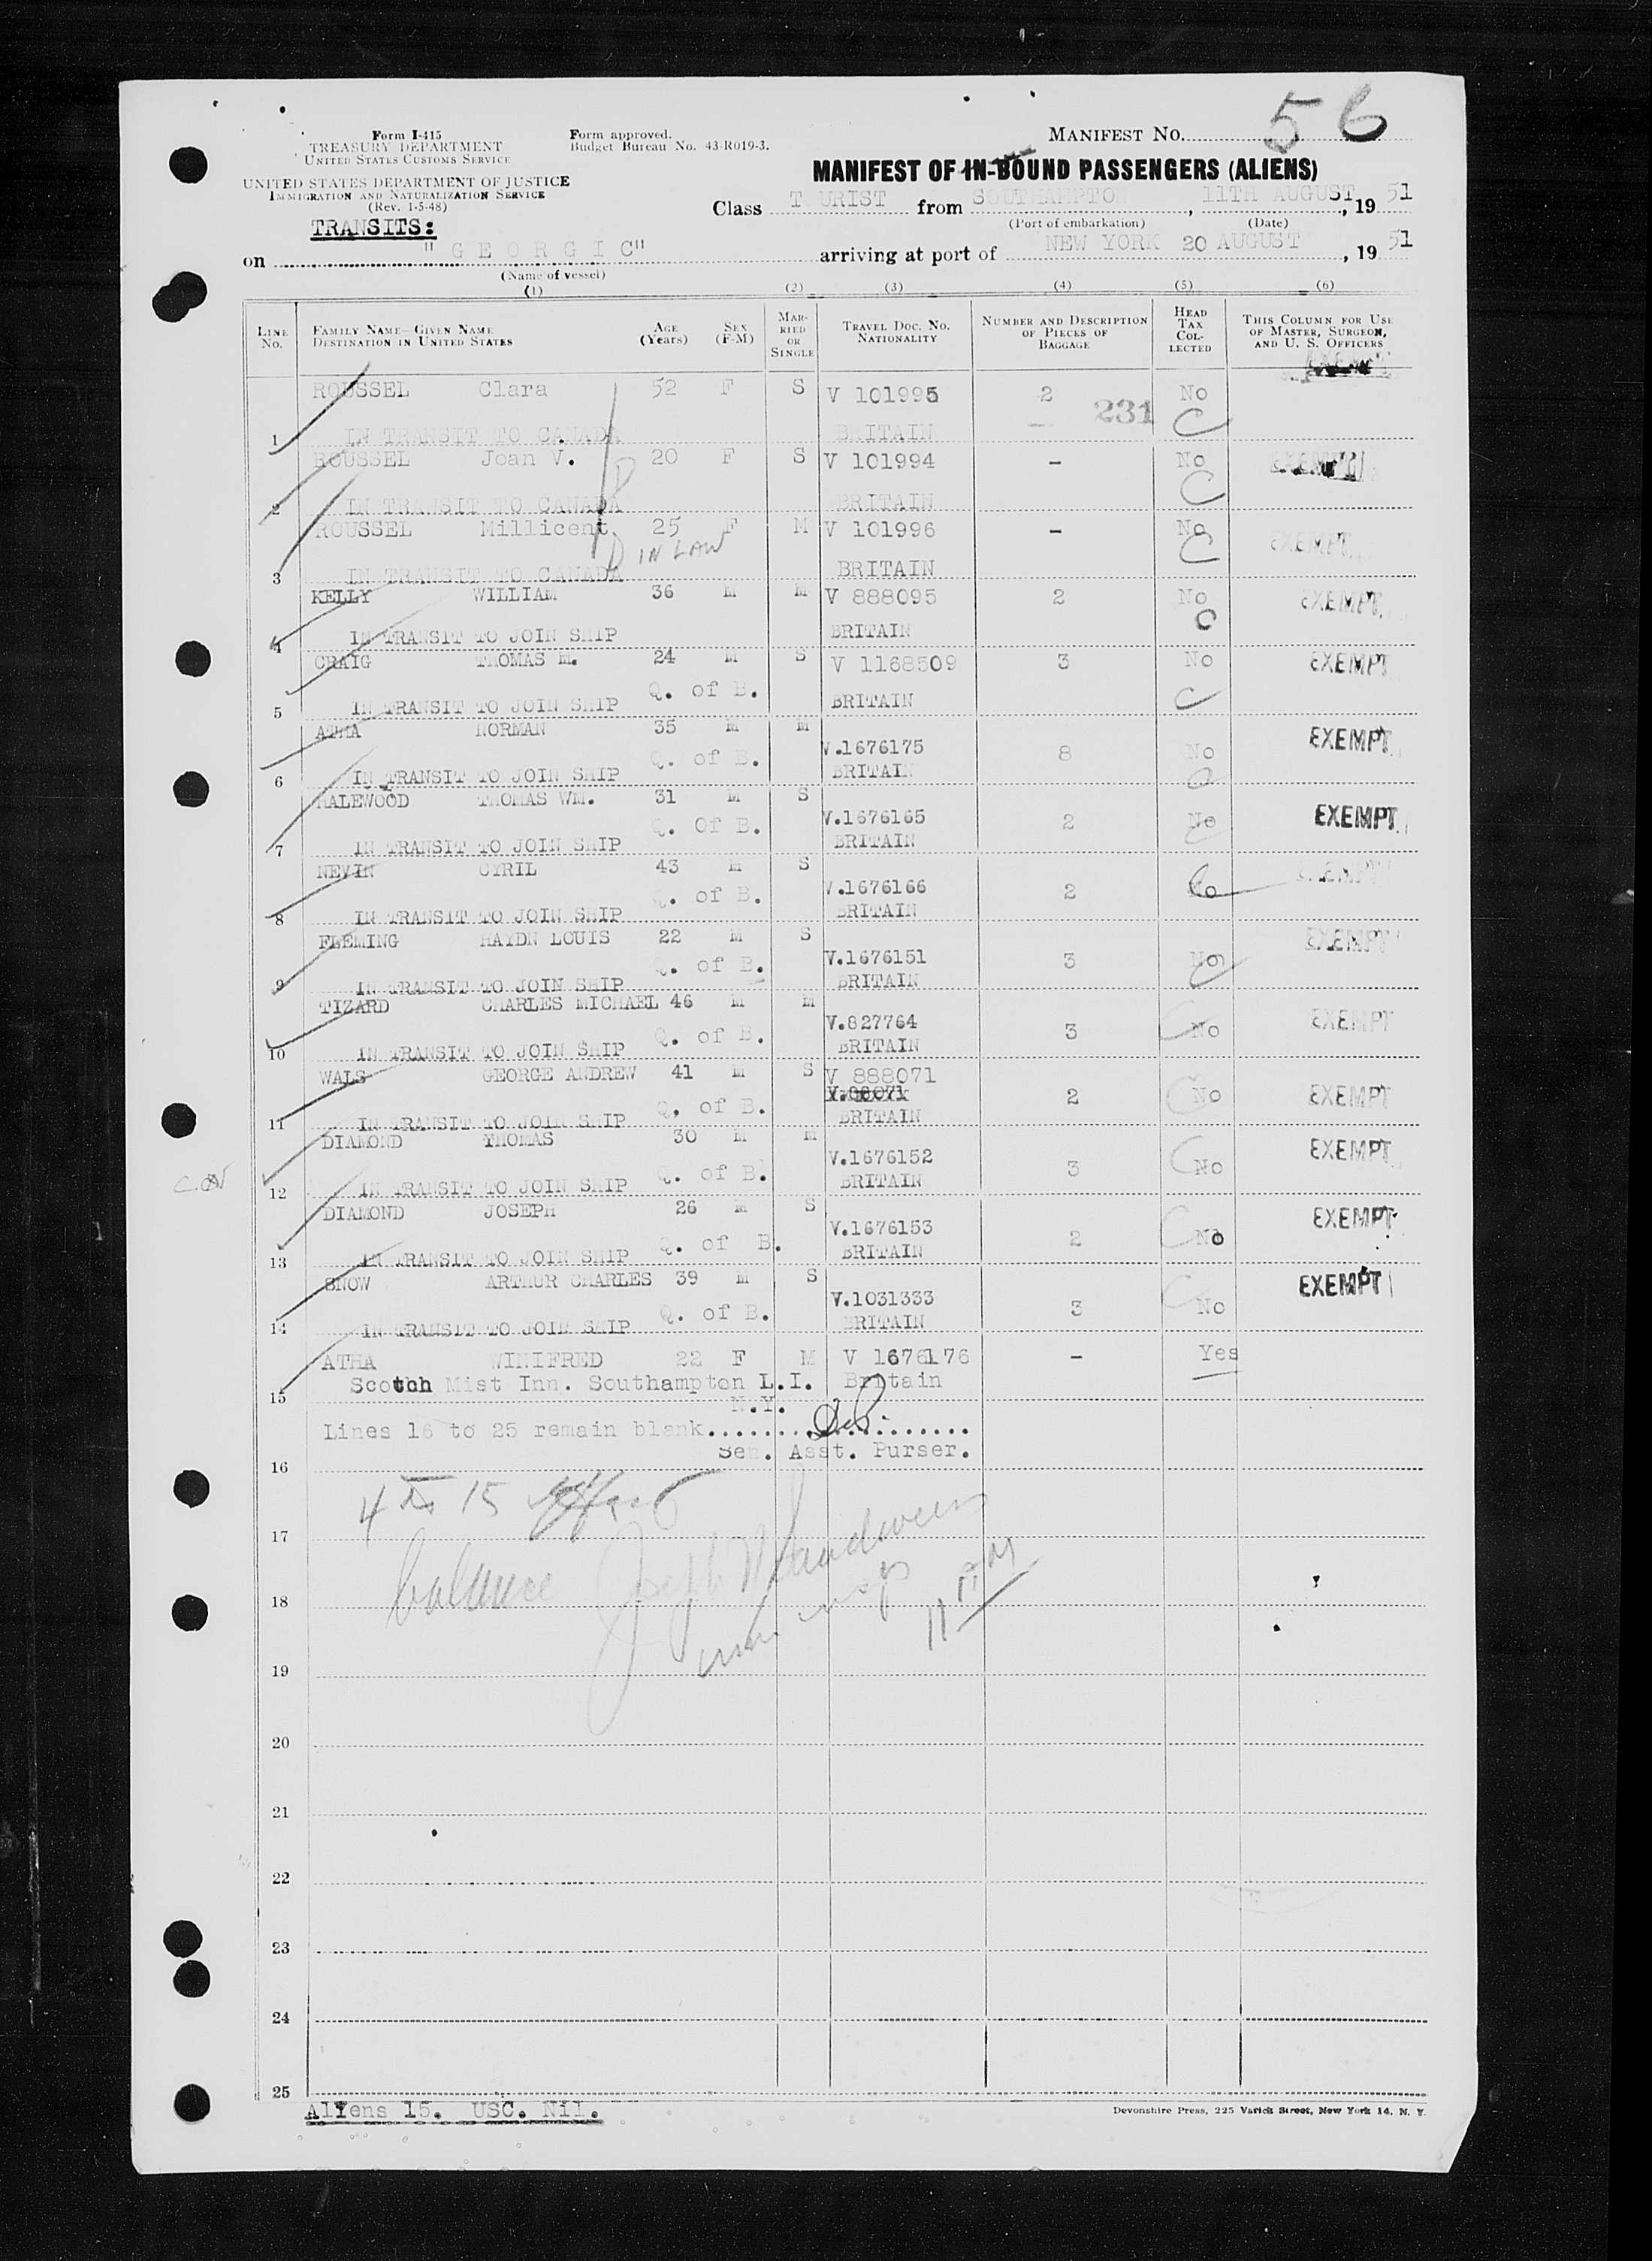 56
Form I-415
TREASURY DEPARTMENT
UNITED STATES CUSTOMS SERVICE
Form approved.
Budget Bureau No. 43-R019-3.
MANIFEST No.
UNITED STATES DEPARTMENT OF JUSTICE
IMMIGRATION AND NATURALIZATION SERVICE
(Rev. 1-5-48)
MANIFEST OF IN-BOUND PASSENGERS (ALIENS)
TRANSITS:
Class T URIST from SOUTHAMPTON, 11TH AUGUST, 19 51
(Port of embarkation) (Date)
on "GEORGIC" arriving at port of NEW YORK 20 AUGUST, 19 51
(Name of vessel)
(1) (2) (3) (4) (5) (6)
LINE No. FAMILY NAME—GIVEN NAME DESTINATION IN UNITED STATES AGE (Years) SEX (F-M) MARRIED OR SINGLE TRAVEL DOC. NO. NATIONALITY NUMBER AND DESCRIPTION OF PIECES OF BAGGAGE HEAD TAX COLLECTED THIS COLUMN FOR USE OF MASTER, SURGEON, AND U. S. OFFICERS
ROUSSEL Clara 52 F S V 101995 2 No EXEMPT
231
1 IN TRANSIT TO CANADA BRITAIN C
ROUSSEL Joan V. 20 F S V 101994 - No EXEMPT
2 IN TRANSIT TO CANADA D BRITAIN C
ROUSSEL Millicent 25 F M V 101996 - No EXEMPT
D IN LAW C
3 IN TRANSIT TO CANADA BRITAIN
KELLY WILLIAM 36 M M V 888095 2 No EXEMPT
4 IN TRANSIT TO JOIN SHIP BRITAIN C
CRAIG THOMAS M. 24 M S V 1168509 3 No EXEMPT
Q. of B.
5 IN TRANSIT TO JOIN SHIP BRITAIN C
ATHA NORMAN 35 M M V.1676175 8 No EXEMPT
Q. of B.
6 IN TRANSIT TO JOIN SHIP BRITAIN C
HALEWOOD THOMAS WM. 31 M S V.1676165 2 No EXEMPT
Q. Of B.
7 IN TRANSIT TO JOIN SHIP BRITAIN C
NEVIN CYRIL 43 M S V.1676166 2 No EXEMPT
Q. of B.
8 IN TRANSIT TO JOIN SHIP BRITAIN
FLEMING HAYDN LOUIS 22 M S V.1676151 3 No EXEMPT
Q. of B.
9 IN TRANSIT TO JOIN SHIP BRITAIN
TIZARD CHARLES MICHAEL 46 M M V.827764 3 No EXEMPT
Q. of B.
10 IN TRANSIT TO JOIN SHIP BRITAIN
WALS GEORGE ANDREW 41 M S V 888071
V.88071 2 C No EXEMPT
Q. of B.
11 IN TRANSIT TO JOIN SHIP BRITAIN
DIAMOND THOMAS 30 M M V.1676152 3 C No EXEMPT
Q. of B.
12 IN TRANSIT TO JOIN SHIP BRITAIN
DIAMOND JOSEPH 26 M S V.1676153 2 C No EXEMPT
Q. of B.
13 IN TRANSIT TO JOIN SHIP BRITAIN
SNOW ARTHUR CHARLES 39 M S V.1031333 3 C No EXEMPT
Q. of B.
14 IN TRANSIT TO JOIN SHIP BRITAIN
ATHA WINIFRED 22 F M V 1676176 - Yes
Scotch Mist Inn. Southampton L.I. Britain
15 N.Y.
Lines 16 to 25 remain blank
Sen. Asst. Purser.
16
4 to 15
17
balance Joseph
18
11 PM
19
20
21
22
23
24
25
Aliens 15. USC. Nil.
Devonshire Press, 225 Varick Street, New York 14, N. Y.